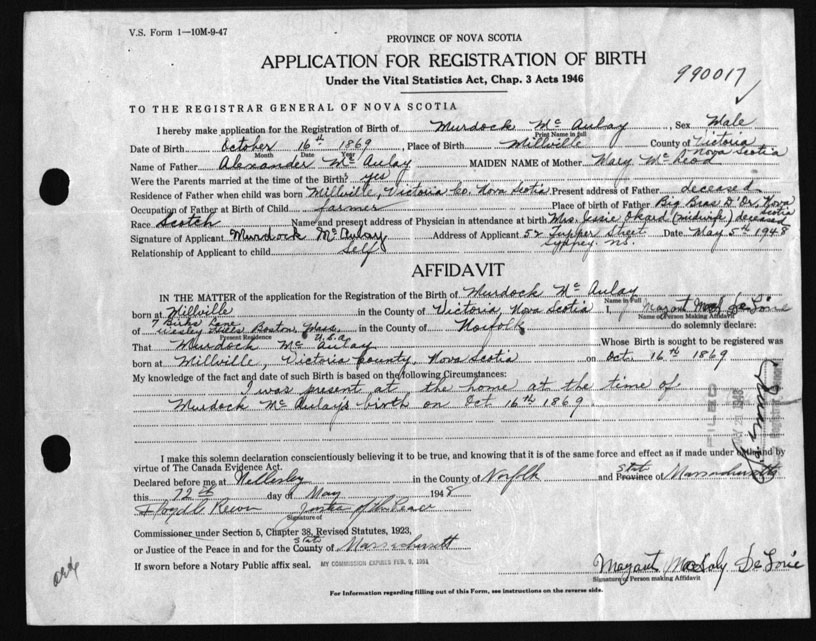 V.S. Form 1—10M-9-47
PROVINCE OF NOVA SCOTIA
APPLICATION FOR REGISTRATION OF BIRTH
Under the Vital Statistics Act, Chap. 3 Acts 1946
990017
TO THE REGISTRAR GENERAL OF NOVA SCOTIA
I hereby make application for the Registration of Birth of Murdock Mc Aulay, Sex Male
Print Name in full
Date of Birth October 16th 1869, Place of Birth Millville County of Victoria
Month Date Year Nova Scotia
Name of Father Alexander Mc Aulay MAIDEN NAME of Mother Mary Mc Leod
Were the Parents married at the time of the Birth? yes
Residence of Father when child was born Millville, Victoria Co. Nova Scotia Present address of Father deceased
Occupation of Father at Birth of Child farmer Place of birth of Father Big Bras D'Or, Nova Scotia
Race Scotch Name and present address of Physician in attendance at birth Mrs. Jessie (midwife) deceased
Signature of Applicant Murdock Mc Aulay Address of Applicant 52 Tupper Street Date May 5th 1948
Relationship of Applicant to child self Sydney. N.S.
AFFIDAVIT
IN THE MATTER of the application for the Registration of the Birth of Murdock Mc Aulay
Name in Full
born at Millville in the County of Victoria, Nova Scotia I,
Name of Person Making Affidavit
of 7 Boston, Mass. in the County of Norfolk do solemnly declare:
Present Residence U.S.A.
That Murdock Mc Aulay Whose Birth is sought to be registered was
born at Millville, Victoria County, Nova Scotia on Oct. 16th 1869
My knowledge of the fact and date of such Birth is based on the following Circumstances:
I was present at the home at the time of
Murdock Mc Aulay's birth on Oct 16th 1869
FILED
I make this solemn declaration conscientiously believing it to be true, and knowing that it is of the same force and effect as if made under oath and by
virtue of The Canada Evidence Act.
Declared before me at Wellesley in the County of Norfolk and State Province of Massachusetts
this 12th day of May 1948
Justice of the Peace
Signature of
Commissioner under Section 5, Chapter 38, Revised Statutes, 1923,
or Justice of the Peace in and for the State County of Massachusetts
If sworn before a Notary Public affix seal. MY COMMISSION EXPIRES FEB. 9, 1951
Signature of Person making Affidavit
For Information regarding filling out of this Form, see instructions on the reverse side.